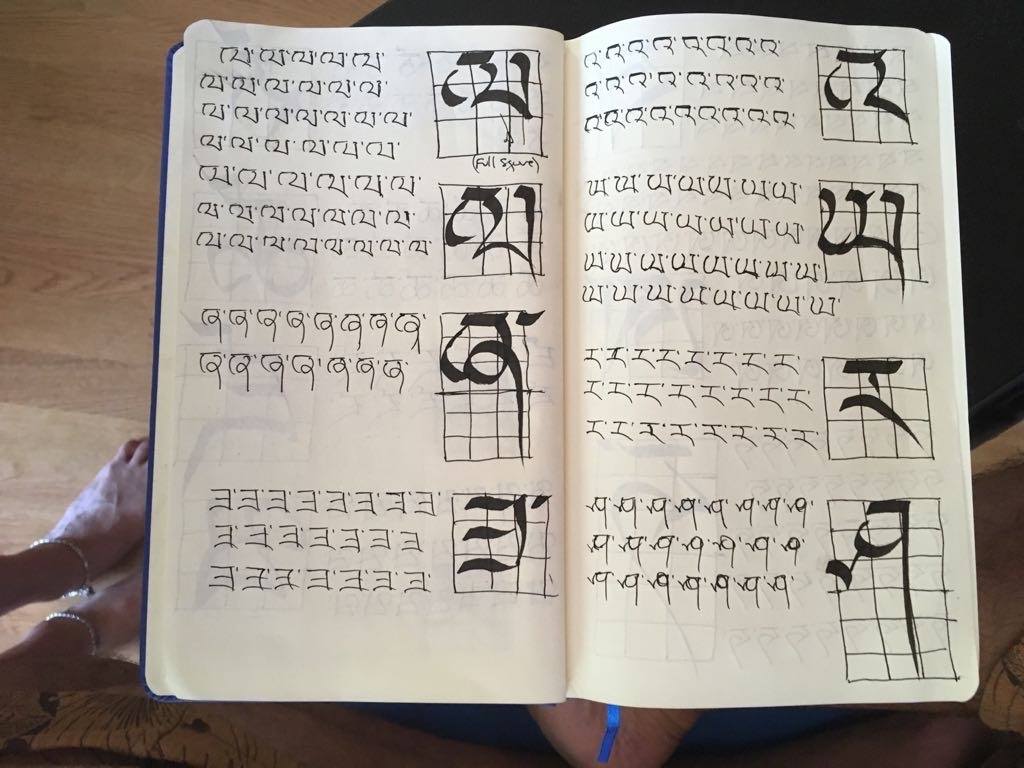 ཝ་ཝ་ཝ་ཝ་ཝ་
ཝ
ཝ་ཝ་ཝ་ཝ་ཝ་ཝ་
ཝ་ཝ་ཝ་ཝ་ཝ་ཝ་
ཝ་ཝ་ཝ་ཝ་ཝ་ཝ་
(Full Square)
ཝ་ཝ་ཝ་ཝ་ཝ་ཝ་
ཝ
ཝ་ཝ་ཝ་ཝ་ཝ་ཝ་
ཝ་ཝ་ཝ་ཝ་ཝ་ཝ་ཝ་
ཞ་ཞ་ཞ་ཞ་ཞ་ཞ་ཞ་ཞ་
ཞ་
ཞ་ཞ་ཞ་ཞ་ཞ་ཞ་ཞ་
ཟ་ཟ་ཟ་ཟ་ཟ་ཟ་ཟ་ཟ་
ཟ་
ཟ་ཟ་ཟ་ཟ་ཟ་ཟ་ཟ་
ཟ་ཟ་ཟ་ཟ་ཟ་ཟ་ཟ་
འ་འ་འ་འ་འ་འ་འ་འ་
འ
འ་འ་འ་འ་འ་འ་འ་འ་
འ་འ་འ་འ་འ་འ་འ་འ་
ཡ་ཡ་ཡ་ཡ་ཡ་ཡ་ཡ་
ཡ
ཡ་ཡ་ཡ་ཡ་ཡ་ཡ་ཡ་
ཡ་ཡ་ཡ་ཡ་ཡ་ཡ་ཡ་ཡ་
ཡ་ཡ་ཡ་ཡ་ཡ་ཡ་ཡ་ཡ་
ར་ར་ར་ར་ར་ར་ར་ར་
ར
ར་ར་ར་ར་ར་ར་ར་ར་
ར་ར་ར་ར་ར་ར་ར་ར་
ཤ་ཤ་ཤ་ཤ་ཤ་ཤ་ཤ་ཤ་
ཤ
ཤ་ཤ་ཤ་ཤ་ཤ་ཤ་ཤ་
ཤ་ཤ་ཤ་ཤ་ཤ་ཤ་ཤ་